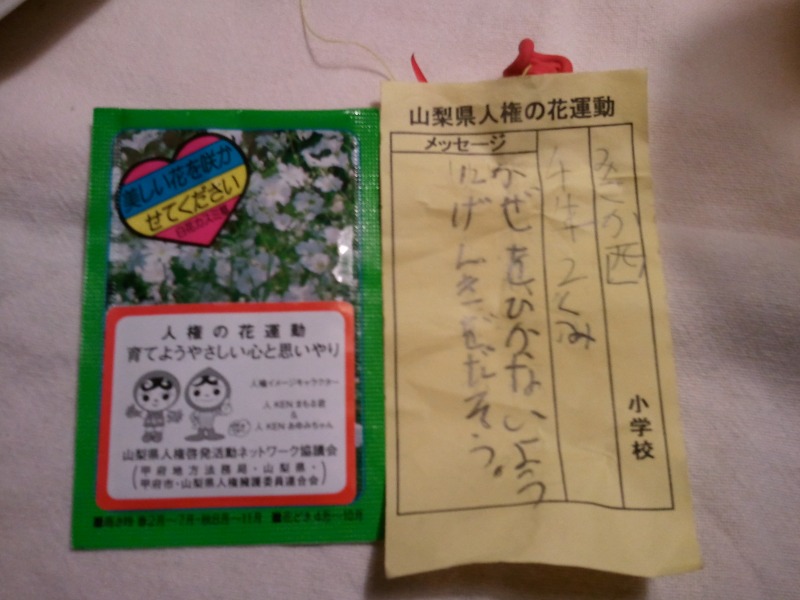 美しい花を咲か
せてください
人権の花運動
育てようやさしい心と思いやり
人権イメージキャラクター
人KENまもる君
&
人KENあゆみちゃん
山梨県人権啓発活動ネットワーク協議会
(甲府地方法務局・山梨県・
甲府市・山梨県人権擁護委員連合会)
山梨県人権の花運動
西
小学校
2くみ
メッセージ
かぜをひかないよう
にげんきをだそう。